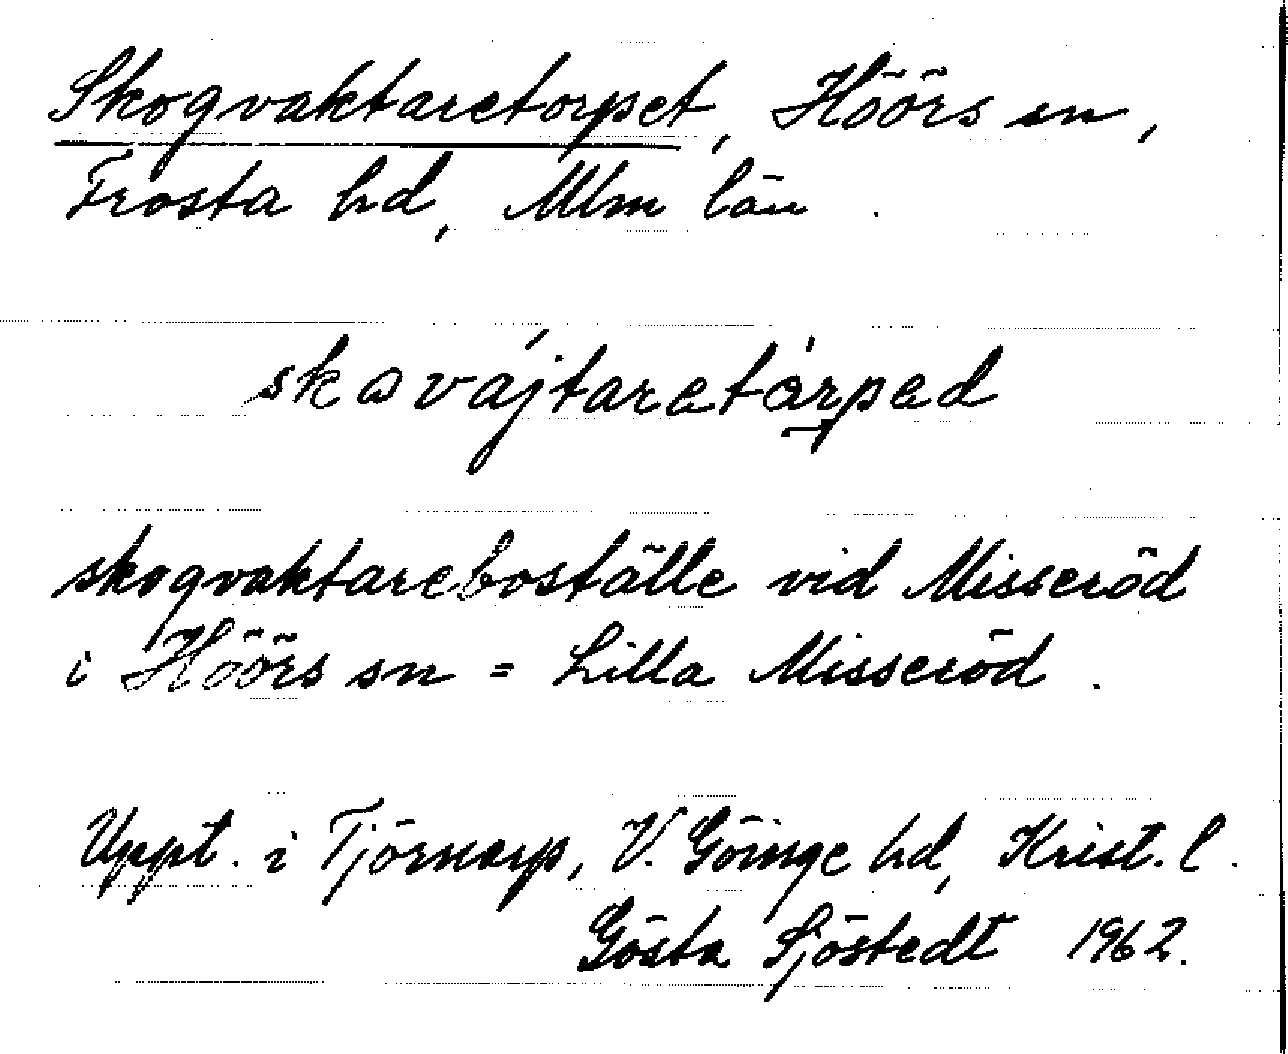 Skogvaktaretorpet, Höörs sn,
Frosta hd, Mlm län.
skɷvájtaretàrpad
skogvaktareboställe vid Misseröd
i Höörs sn = Lilla Misseröd.
Uppt. i Tjörnarp, V. Göinge hd, Krist. l.
Gösta Sjöstedt 1962.